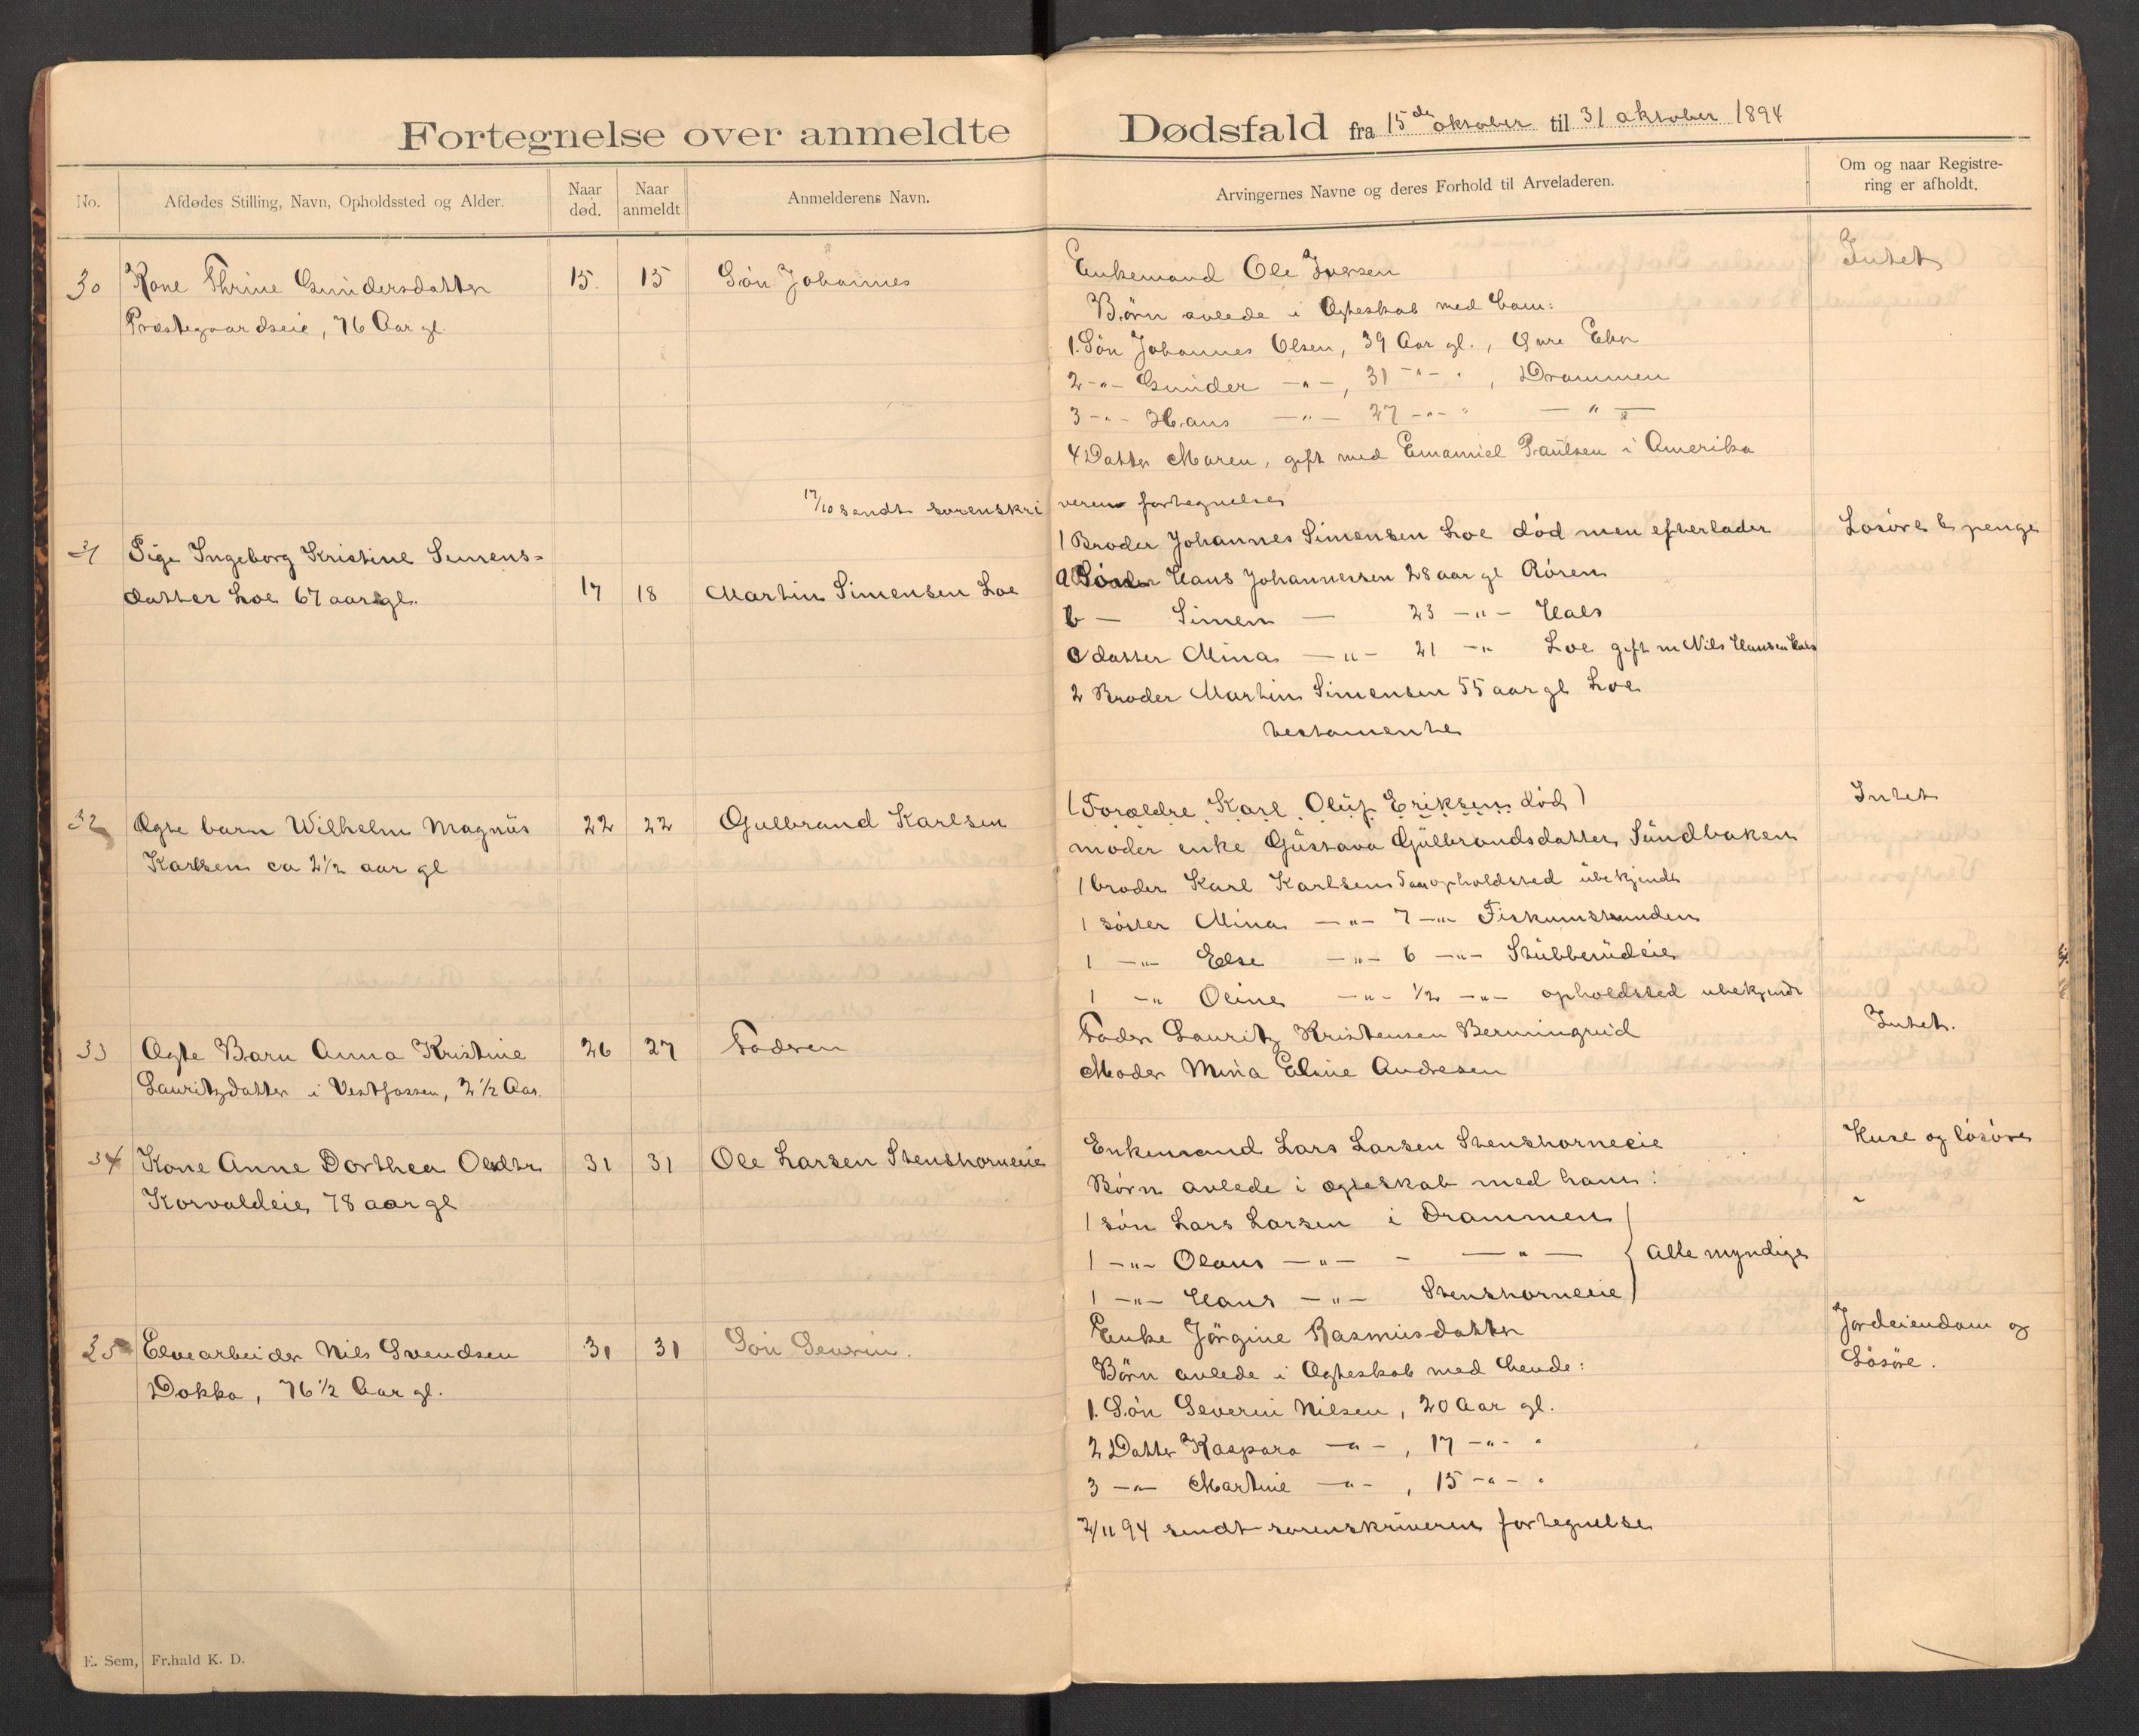 Fortegnelse over anmeldte Dødsfald fra 15de oktober til 31 oktober 1894
No. Afdødes Stilling, Navn, Opholdssted og Alder. Naar død. Naar anmeldt Anmelderens Navn. Arvingernes Navne og deres Forhold til Arveladeren. Om og naar Registrering er afholdt.
30 Kone Thrine Gundersdatter 15. 15 Søn Johannes
Præstegaardseie, 76 Aar gl.
Enkemand Ole Iversen Intet
Børn avlede i Ægteskab med ham:
1. Søn Johannes Olsen, 39 Aar gl., Øvre Eker
2 -"- Gunder -"-, 31 -"- ", Drammen
3 -"- Hans -"- 27 -"- " -"-
4 Datter Maren, gift med Emanuel Paulsen i Amerika
17/10 sendt sorenskriveren fortegnelse
31 Pige Ingeborg Kristine Simens-
datter Loe 67 aar gl. 17 18 Martin Simensen Loe
1 Broder Johannes Simensen Loe död men efterlader Losöre & penge
a Sön Hans Johannessen 28 aar gl Rören
b — Simen — 23 -"- Hals
c datter Mina -"- 21 -" Loe gift m Nils Hansen Hals
2 Broder Martin Simensen 55 aar gl Loe
testamente
32 Ægte barn Wilhelm Magnus 22 22 Gulbrand Karlsen
Karlsen ca 2½ aar gl
(Forældre Karl Oluf Eriksen död) Intet
moder enke Gustava Gulbrandsdatter Sundbaken
1 broder Karl Karlsen 5 aar opholdsted ubekjendt
1 söster Mina -"- 7 -"- Fiskumstranden
1 -"- Else -"- 6 -"- Stubberudeie
1 -" Oline -"- ½ -"- opholdsted ubekjendt
33 Ægte Barn Anna Kristine 26 27 Faderen
Lauritzdatter i Vestfossen, 2½ Aar.
Fader Lauritz Kristensen Berningrud Intet.
Moder Mina Eline Andresen
34 Kone Anne Dorthea Olsdtr 31 31 Ole Larsen Stenshorneeie
Korvaldeie 78 aar gl
Enkemand Lars Larsen Stenshorneeie Huse og lösöre
Børn avlede i ægteskab med ham:
1 sön Lars Larsen i Drammen
1 -"- Olaus -"- - -"- Alle myndige
1 -"- Hans -"- Stenshorneeie
35 Elvearbeider Nils Svendsen 31 31 Søn Severin.
Dokka, 76½ Aar gl.
Enke Jørgine Rasmusdatter Jordeiendom og
Børn avlede i Ægteskab med hende: Løsøre.
1. Søn Severin Nilsen, 20 Aar gl.
2 Datter Kaspara -"-, 17 -"- "
3 -"- Martine -"-, 15 -"- "
2/11 94 sendt sorenskriveren fortegnelse
E. Sem, Fr.hald K. D.